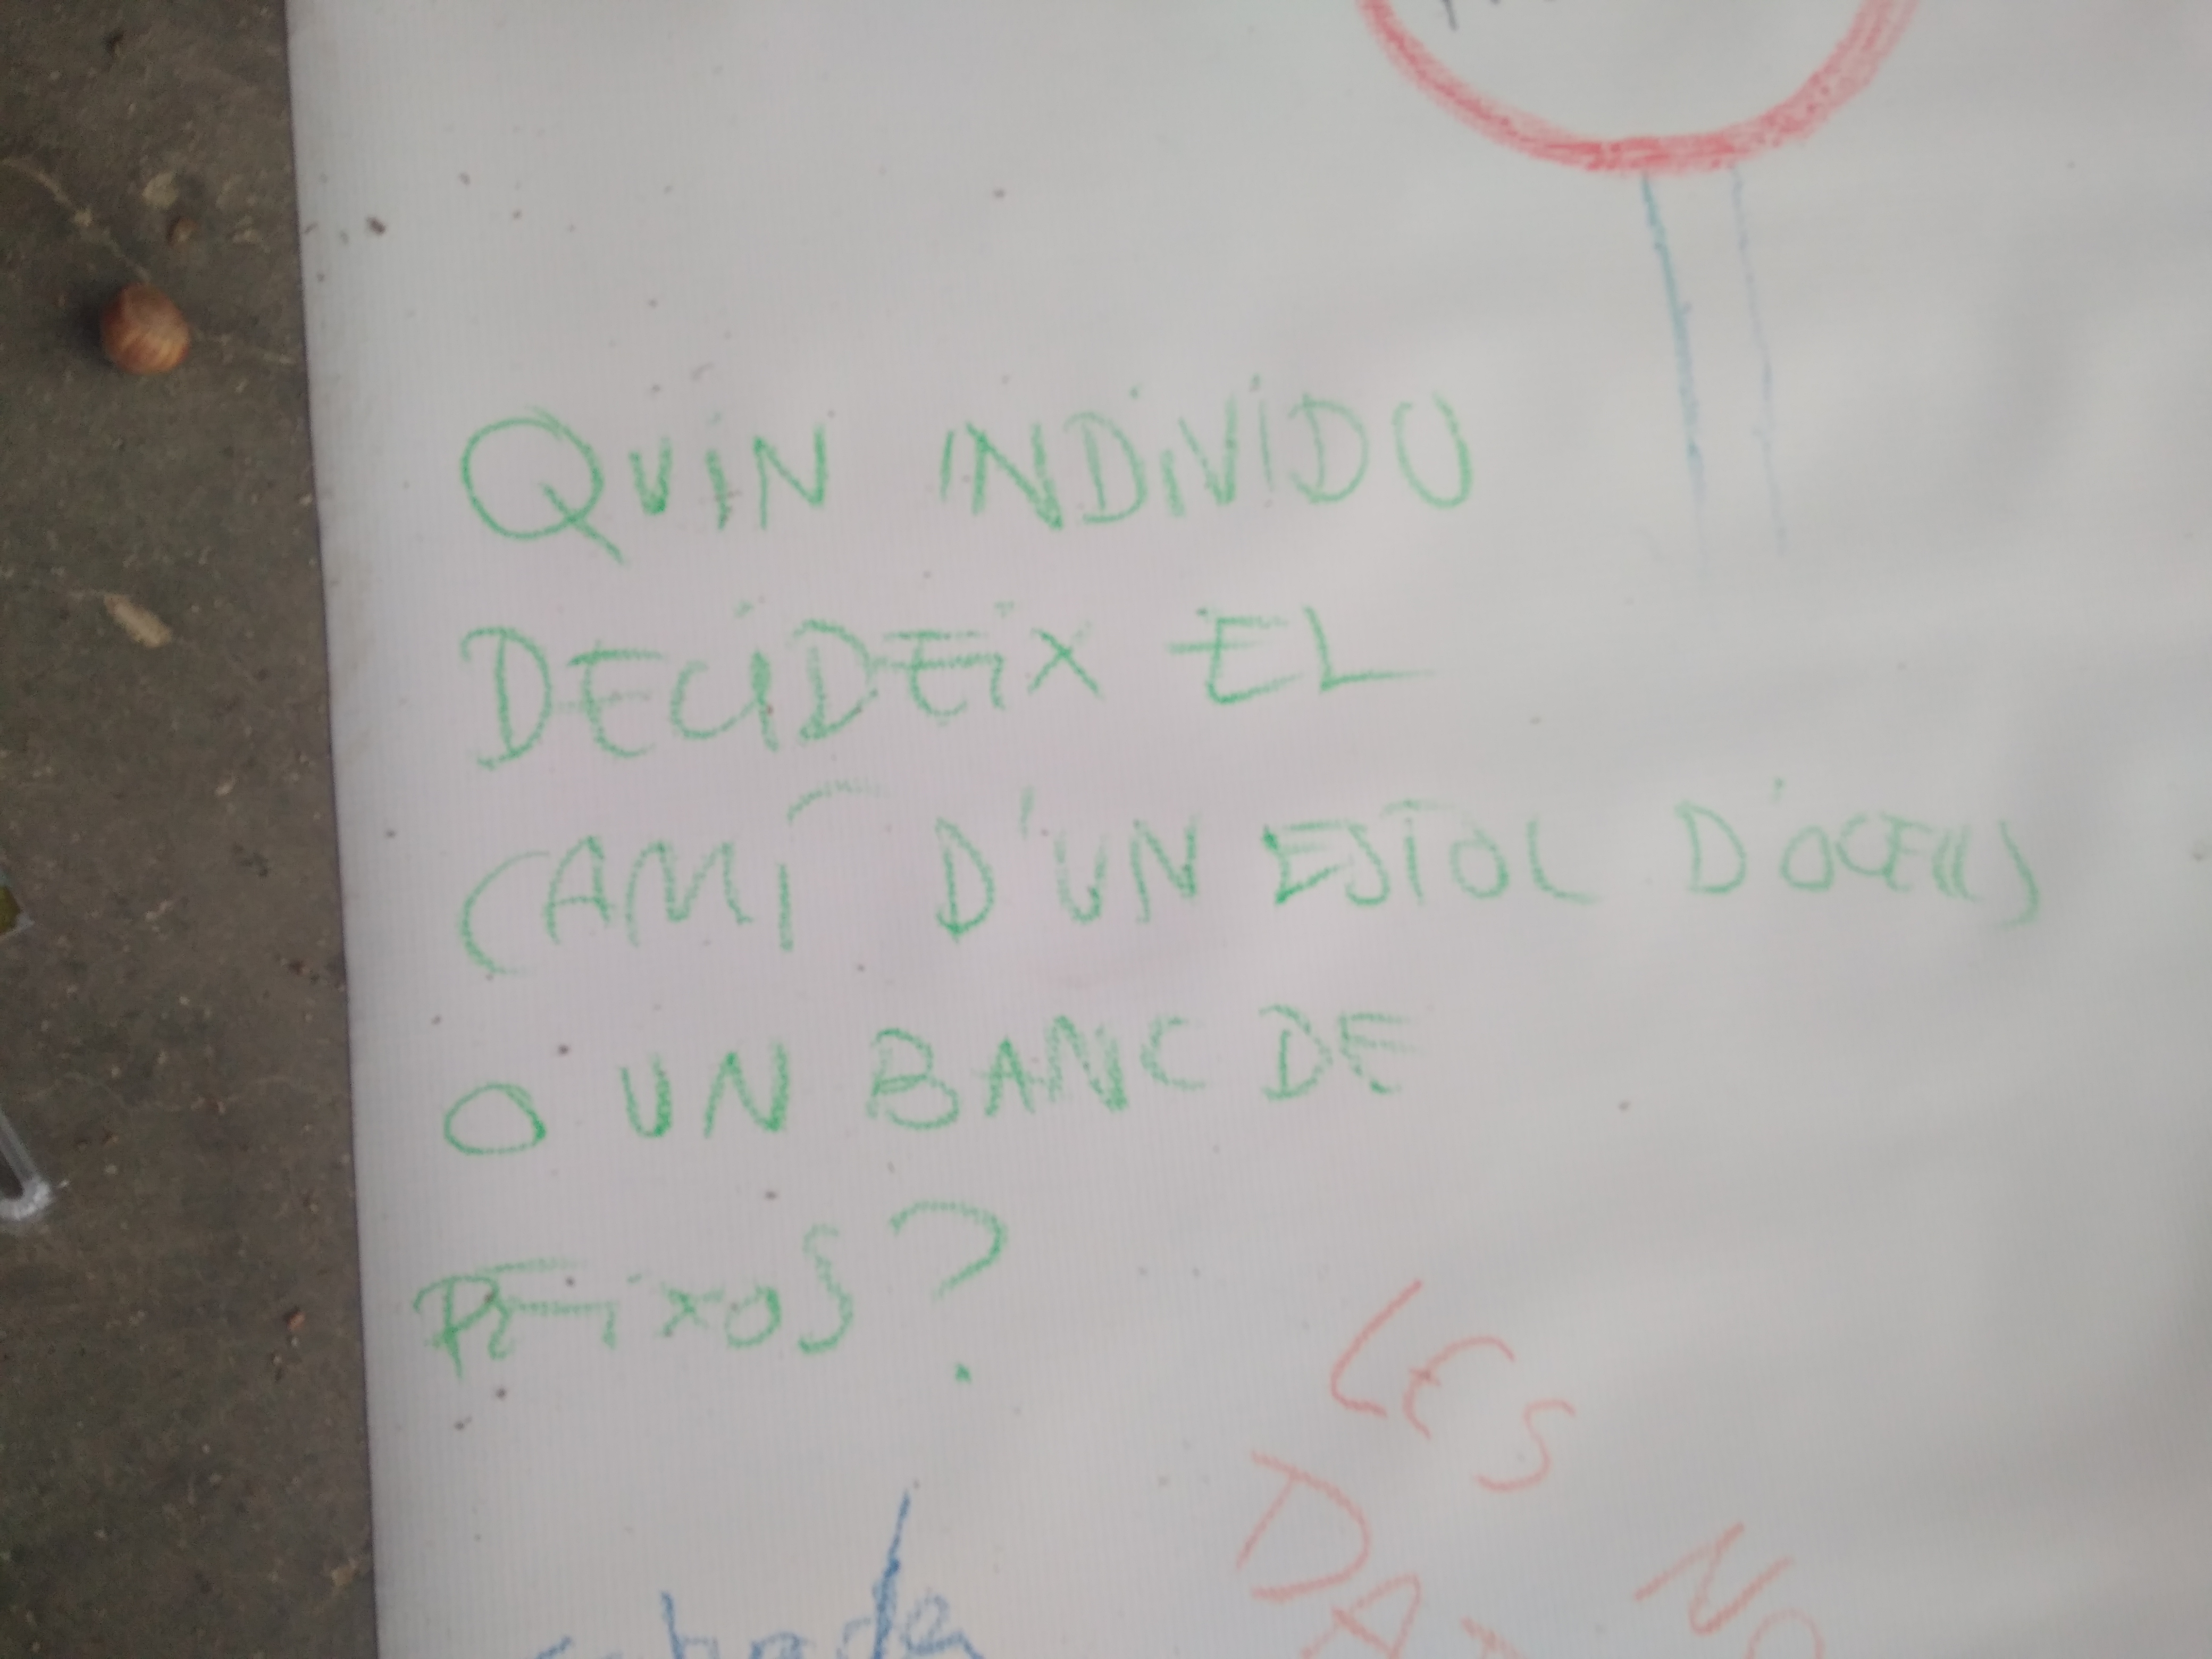 QUIN INDIVIDU
DECIDEIX EL
CAMÍ D'UN ESTOL D'OCELLS
O UN BANC DE
PEIXOS?
LES